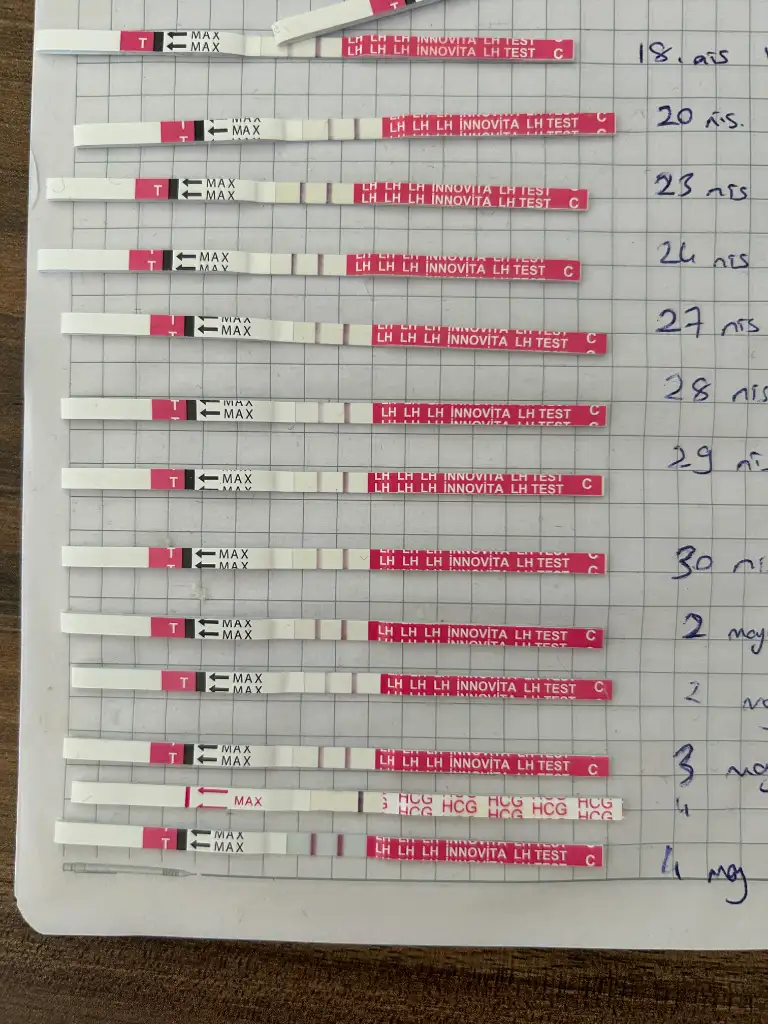 T MAX MAX LH LH LH İNNOVİTA LH TEST C 18. nis
T MAX LH LH LH İNNOVİTA LH TEST C 20 nis.
T MAX MAX LH LH LH İNNOVİTA LH TEST C 23 nis
T MAX MAX LH LH LH İNNOVİTA LH TEST C 24 nis
T MAX MAX LH LH LH İNNOVİTA LH TEST C 27 nis
T MAX MAX LH LH LH İNNOVİTA LH TEST C 28 nis
T MAX MAX LH LH LH İNNOVİTA LH TEST C 29
T MAX MAX LH LH LH İNNOVİTA LH TEST C 30
T MAX MAX LH LH LH İNNOVİTA LH TEST C 2 may
T MAX MAX LH LH LH İNNOVİTA LH TEST C 2
T MAX MAX LH LH LH İNNOVİTA LH TEST C 3 may
MAX HCG HCG HCG HCG HCG 4
T MAX MAX LH LH LH İNNOVİTA LH TEST C 4 may